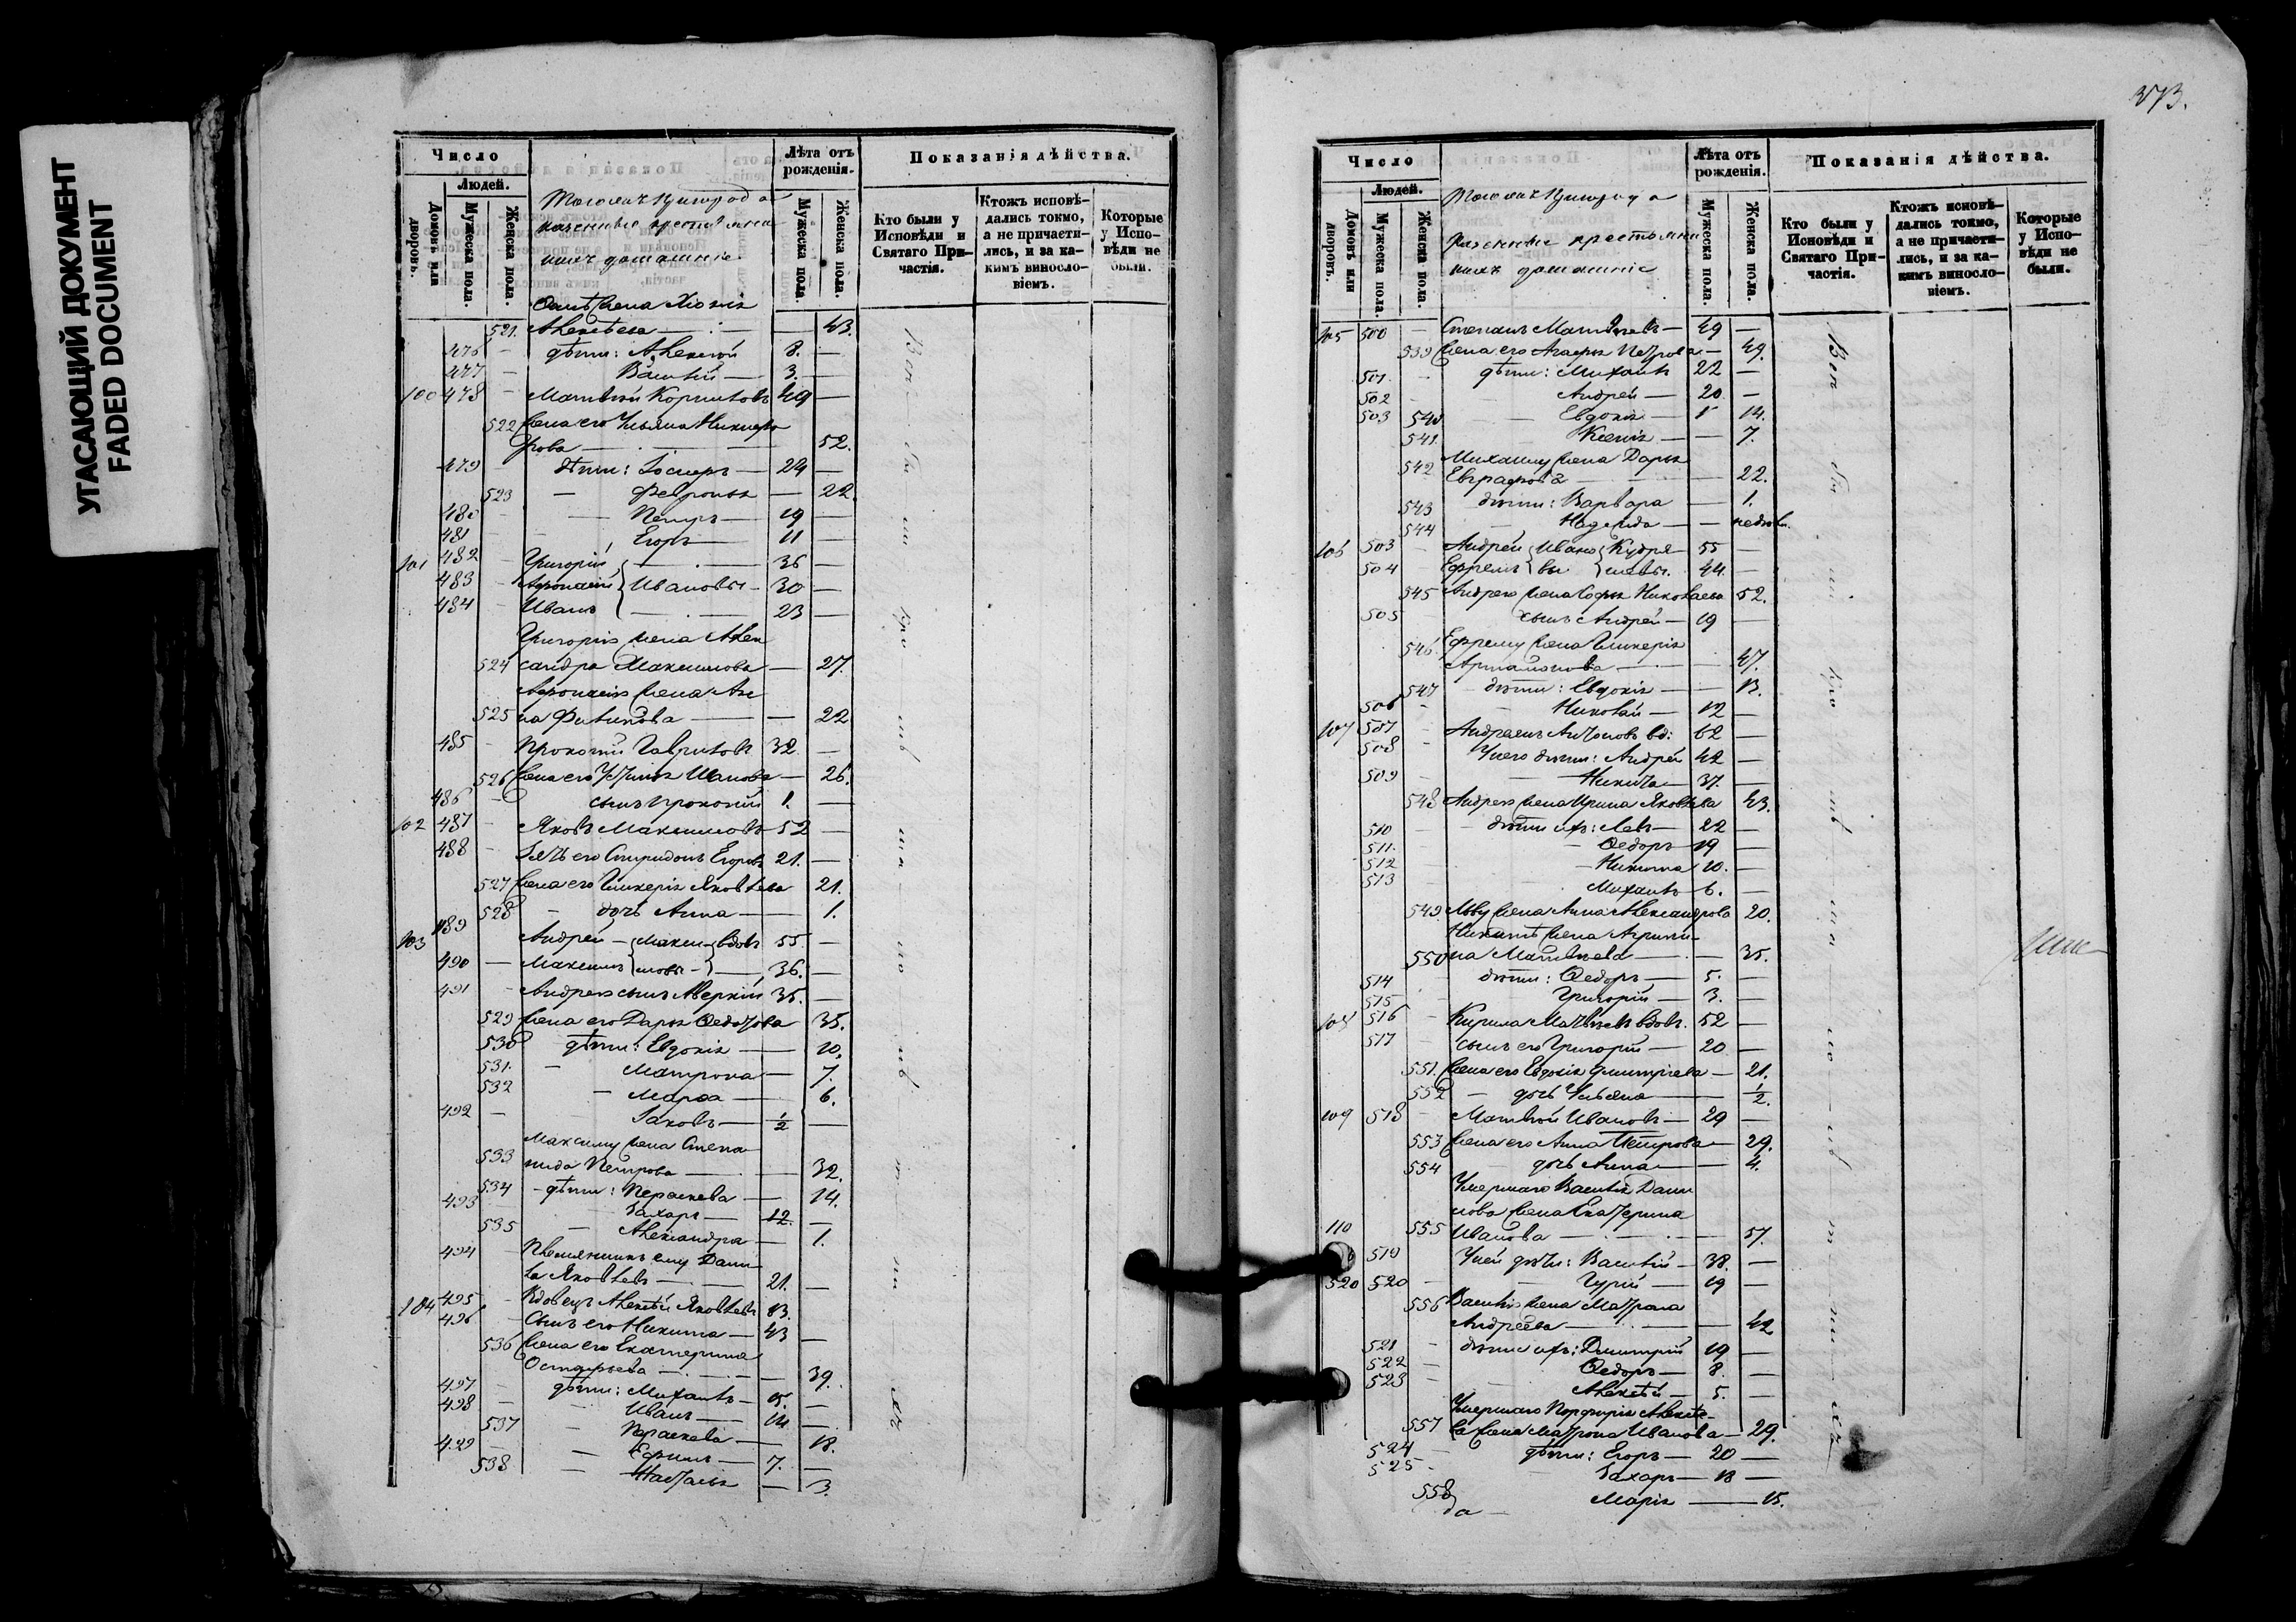 УГАСАЮЩИЙ ДОКУМЕНТ
FADED DOCUMENT
Число
Людей.
Домовъ или дворовъ.
Мужеска пола.
Женска пола.
казенные крестьяне
и ихъ домашніе
Лѣта отъ рожденія.
Мужеска пола
Женска пола.
Показанія дѣйства.
Кто были у Исповѣди и Святаго Причастія.
Ктожъ исповѣдались токмо, а не причастились, и за какимъ винословіемъ.
Которые у Исповѣди не были.
жена
521. Алексѣева — 43.
476 — дѣти: Алексѣй 8. —
477 — Василій — 3. —
100 478 — Матвѣй 49 —
522 жена его Ульяна Никифо
рова — 52.
479 — дѣти: 24 —
523 — Февронья — 22.
480 — Петръ — 19 —
481 — Егоръ — 11 —
101 482 — Григорій — 36 —
483 — Афонасій } Ивановы — 30 —
484 — Иванъ — 23 —
Григорія жена Алек
524 сандра Максимова — 27.
Афонасія жена Ан
525 на Филипова — 22
485 — Прокопій Гавриловъ 32 —
526 жена его Устинья Иванова — 26.
486 — сынъ Прокопій 1. —
102 487 — Яковъ Максимовъ 52 —
488 — Зять его Спиридонъ Егоровъ 21. —
527 жена его Гликерія Яковлева 21.
528 — дочь Анна — 1.
103 489 Андрей — } Макси } вдовъ 55. —
490 — Максимъ } мовы — } — 36. —
491 — Андрея сынъ Аверкій 35. —
529 жена его Дарья Ѳедотова 35.
530 дѣти: Евдокія — 10.
531. — Матрона — 7.
532 — Марѳа — 6.
492 — Іаковъ — 1/2 —
Максиму жена Степа
533 нида Петрова — 32.
534 — дѣти: Параскева — 14.
493 — Захаръ — 12. —
535 — Александра — 1.
494 — Племянникъ ему Дани
ла Яковлевъ — 21. —
104 495 — Вдовецъ Алексѣй Яковлевъ 83.
496 — Сынъ его Никита — 43 —
536 жена его Екатерина
— 39.
497 — дѣти: Михаилъ — 15. —
498 — Иванъ — 14 —
537 — Параскева — 18.
499 — Ефимъ — 7. —
538 — Наталья — 3.
373.
Число
Людей.
Домовъ или дворовъ.
Мужеска пола.
Женска пола.
казенные крестьяне
и ихъ домашніе
Лѣта отъ рожденія.
Мужеска пола.
Женска пола.
Показанія дѣйства.
Кто были у Исповѣди и Святаго Причастія.
Ктожъ исповѣдались токмо, а не причастились, и за какимъ винословіемъ.
Которые у Исповѣди не были.
105 500 — Степанъ Матвѣевъ — 49 —
539 жена его Агафья Петрова — 49.
501. — дѣти: Михаилъ 22 —
502 Андрей — 20. —
503 540 — Евдокія — 14.
541. Ксенія — 7.
Михаилу жена Дарья
542 Евграфова — 22.
543 дѣти: Варвара — 1.
544 — Надежда —
106 503 — Андрей } Ивано } Кудря 55 —
504 — Ефремъ } вы } шевы. 44. —
545 Андрея жена Софья Николаева 52.
505 — сынъ Андрей — 19 —
Ефрему жена Гликерія
546. Артамонова — 47.
547 — дѣти: Евдокія — 13.
506 — Николай — 12 —
107 507 — Андреянъ Антоновъ вд: 62 —
508 — У него дѣти: Андрей 42 —
509 — Никита — 37. —
548 Андрея жена Ирина Яковлева 43.
510 — дѣти ихъ: Левъ — 22 —
511. — Ѳедоръ — 19 —
512 — Никита 10. —
513 — Михаилъ — 6. —
549 Льву жена Анна Александрова 20.
Никитѣ жена Агрипи
550 на Матвѣева — 35.
514 дѣти: Ѳедоръ — 5. —
515 — Григорій — 3. —
108 516 — Кирила Матвѣевъ вдовъ. 52 —
517 — сынъ его Григорій — 20 —
551. жена его Евдокія Димитріева — 21.
552 — дочь Ульяна — 1/2.
109 518 — Матвѣй Ивановъ — 29 —
553 жена его Анна Петрова — 29.
554 — дочь Анна — 4.
Умершаго Василія Дани
лова жена Екатерина
110 555 Иванова — 57.
519 У ней дѣти: Василій — 38. —
520 520 — Гурій — 19 —
556 Василія жена Матрона
Андреева — 42
521 — дѣти ихъ: Димитрій 19 —
522 — Ѳедоръ — 8. —
523 — Алексѣй — 5. —
Умершаго Порфирія Алексѣе-
557 ва жена Матрона Иванова — 29.
524 — дѣти: Егоръ — 20 —
525 — Захаръ — 18 —
558 Марія — 15.
да —